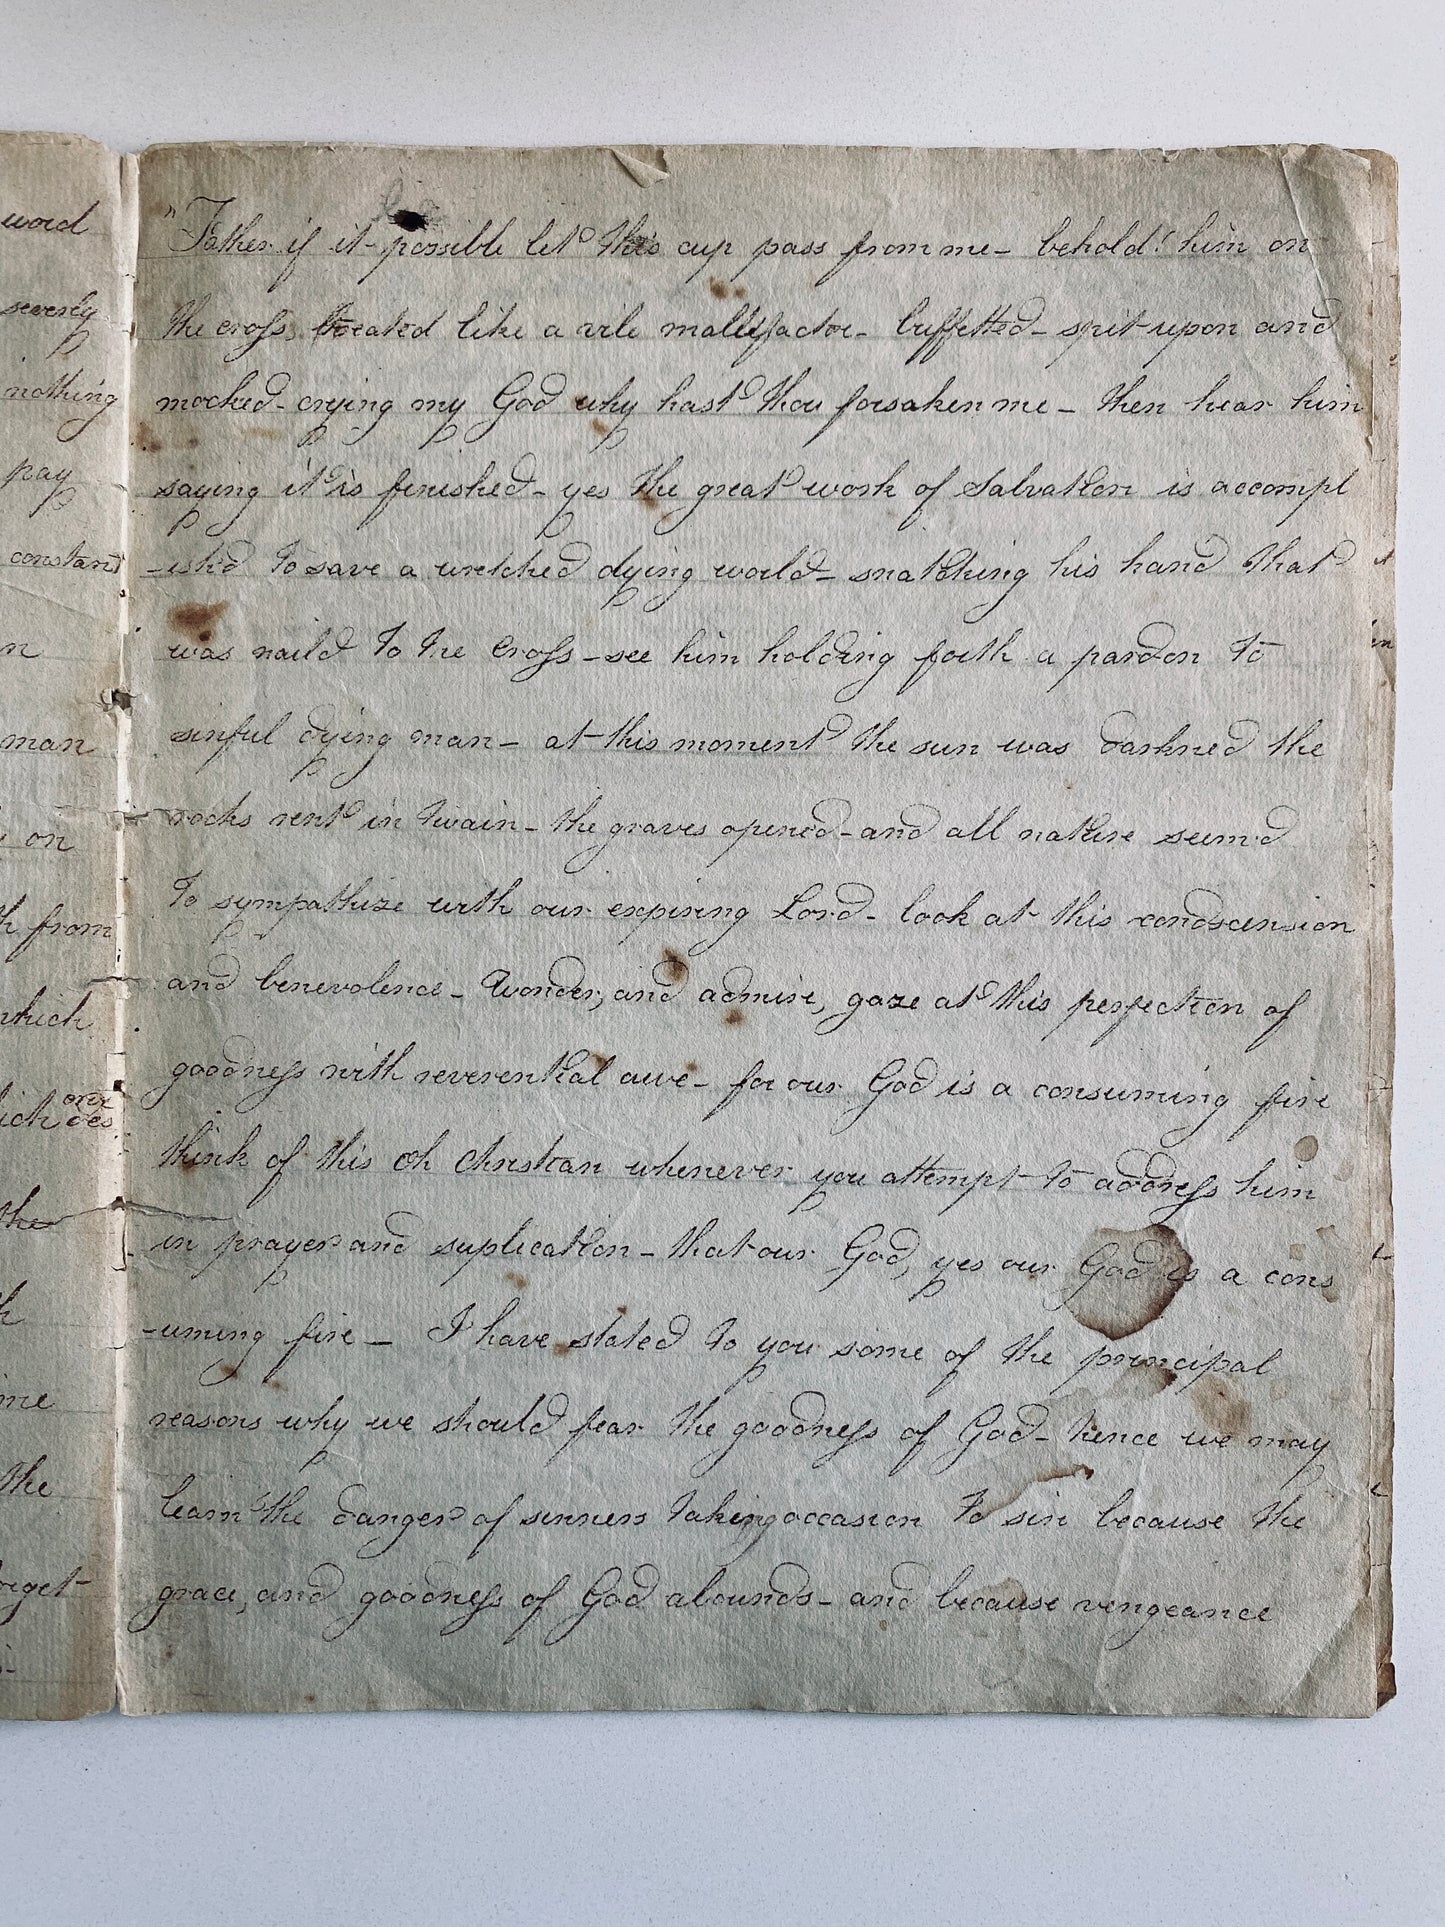 word
severly
nothing
pay
constant
n
man
on
h from
which
one
ich des
the
h
me
the
orget
"Father if it possible let this cup pass from me - behold! him on
the cross, treated like a vile mallifactor - buffetted - spit upon and
mocked - crying my God why hast thou forsaken me - then hear him
saying it is finished - yes the great work of Salvation is accompl
-ish'd to save a wretched dying world - snatching his hand that
was naild to the Cross - see him holding forth a pardon to
sinful dying man - at this moment the sun was darkned the
rocks rent in twain - the graves opened - and all nature seem'd
to sympathize with our expiring Lord - look at this condscension
and benevolence - Wonder, and admire, gaze at this perfection of
goodness with reverential awe - for our God is a consuming fire
think of this Oh Christian whenever you attempt to address him
in prayer and suplication - that our God, yes our God is a cons
-uming fire - I have stated to you some of the principal
reasons why we should fear the goodness of God - hence we may
learn the danger of sinners taking occasion to sin because the
grace, and goodness of God abounds - and because vengeance